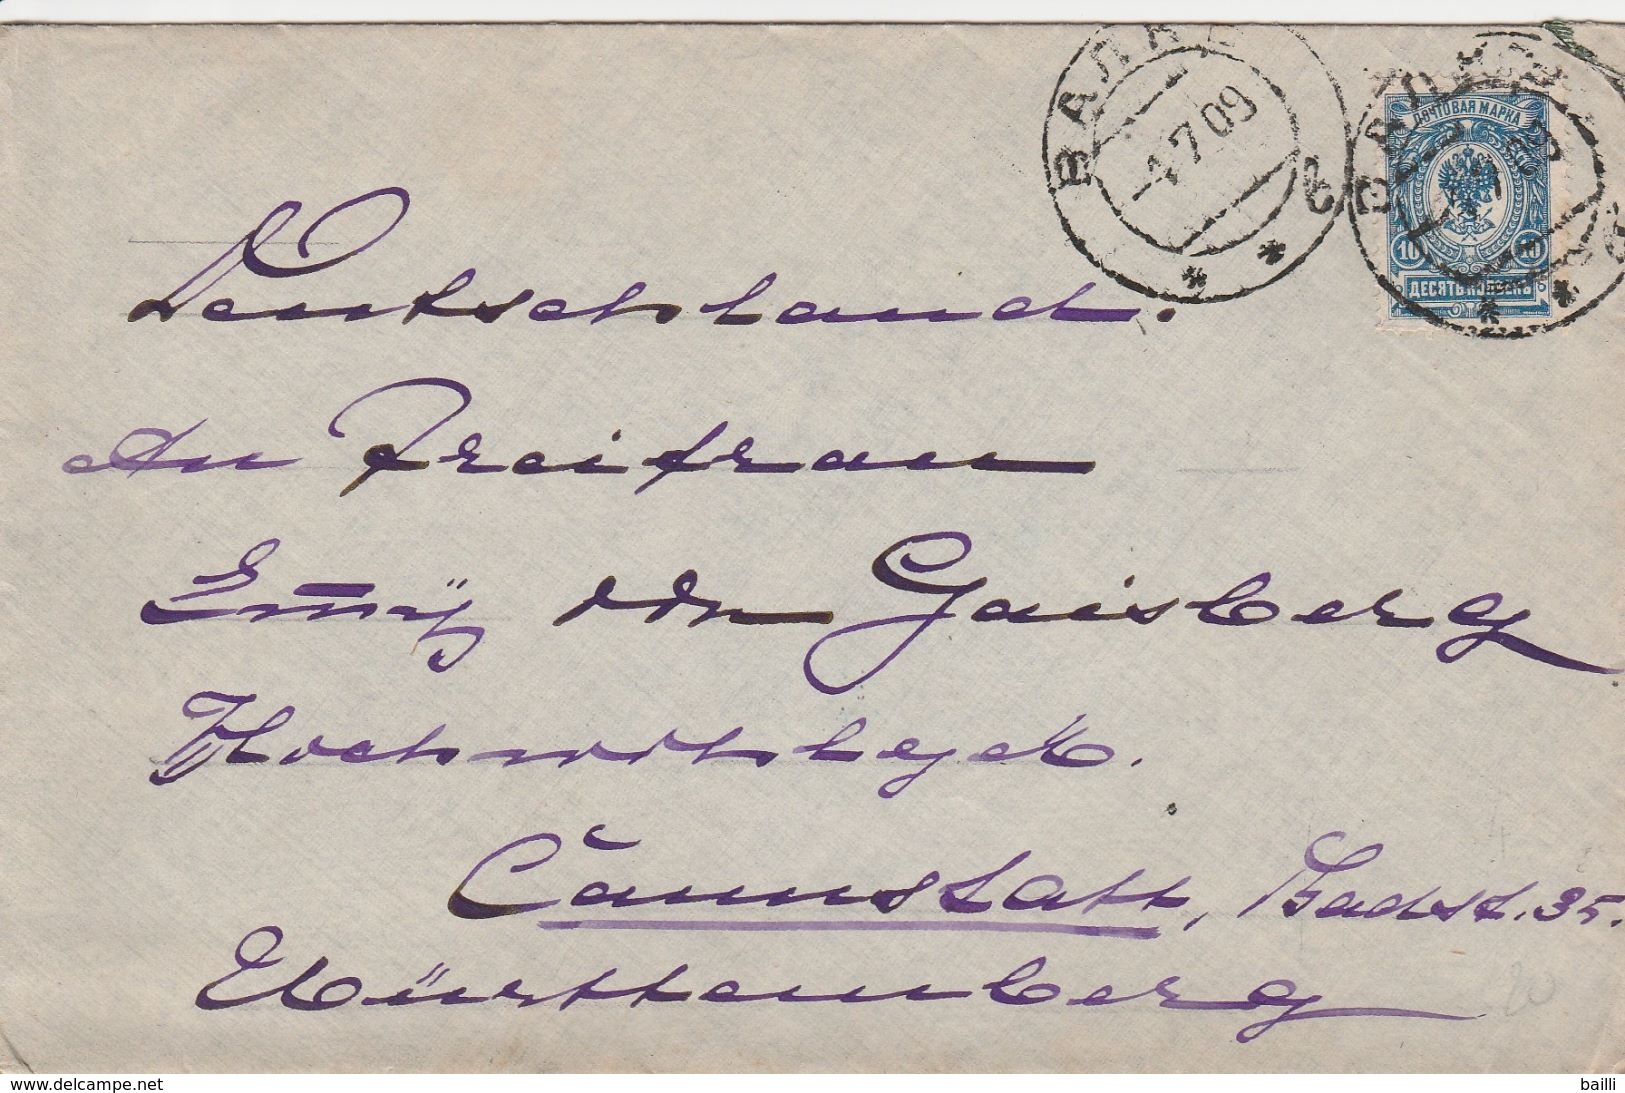 ВАЛКЪ
-1 7 09
ПОЧТОВАЯ МАРКА
10 10
ДЕСЯТЬ КОПѢЕКЪ
Deutschland.
An Freifrau
Emÿ von Gaisberg
Hochwohlgeb.
Cannstatt, Badst. 35.
Württemberg
www.delcampe.net
bailli